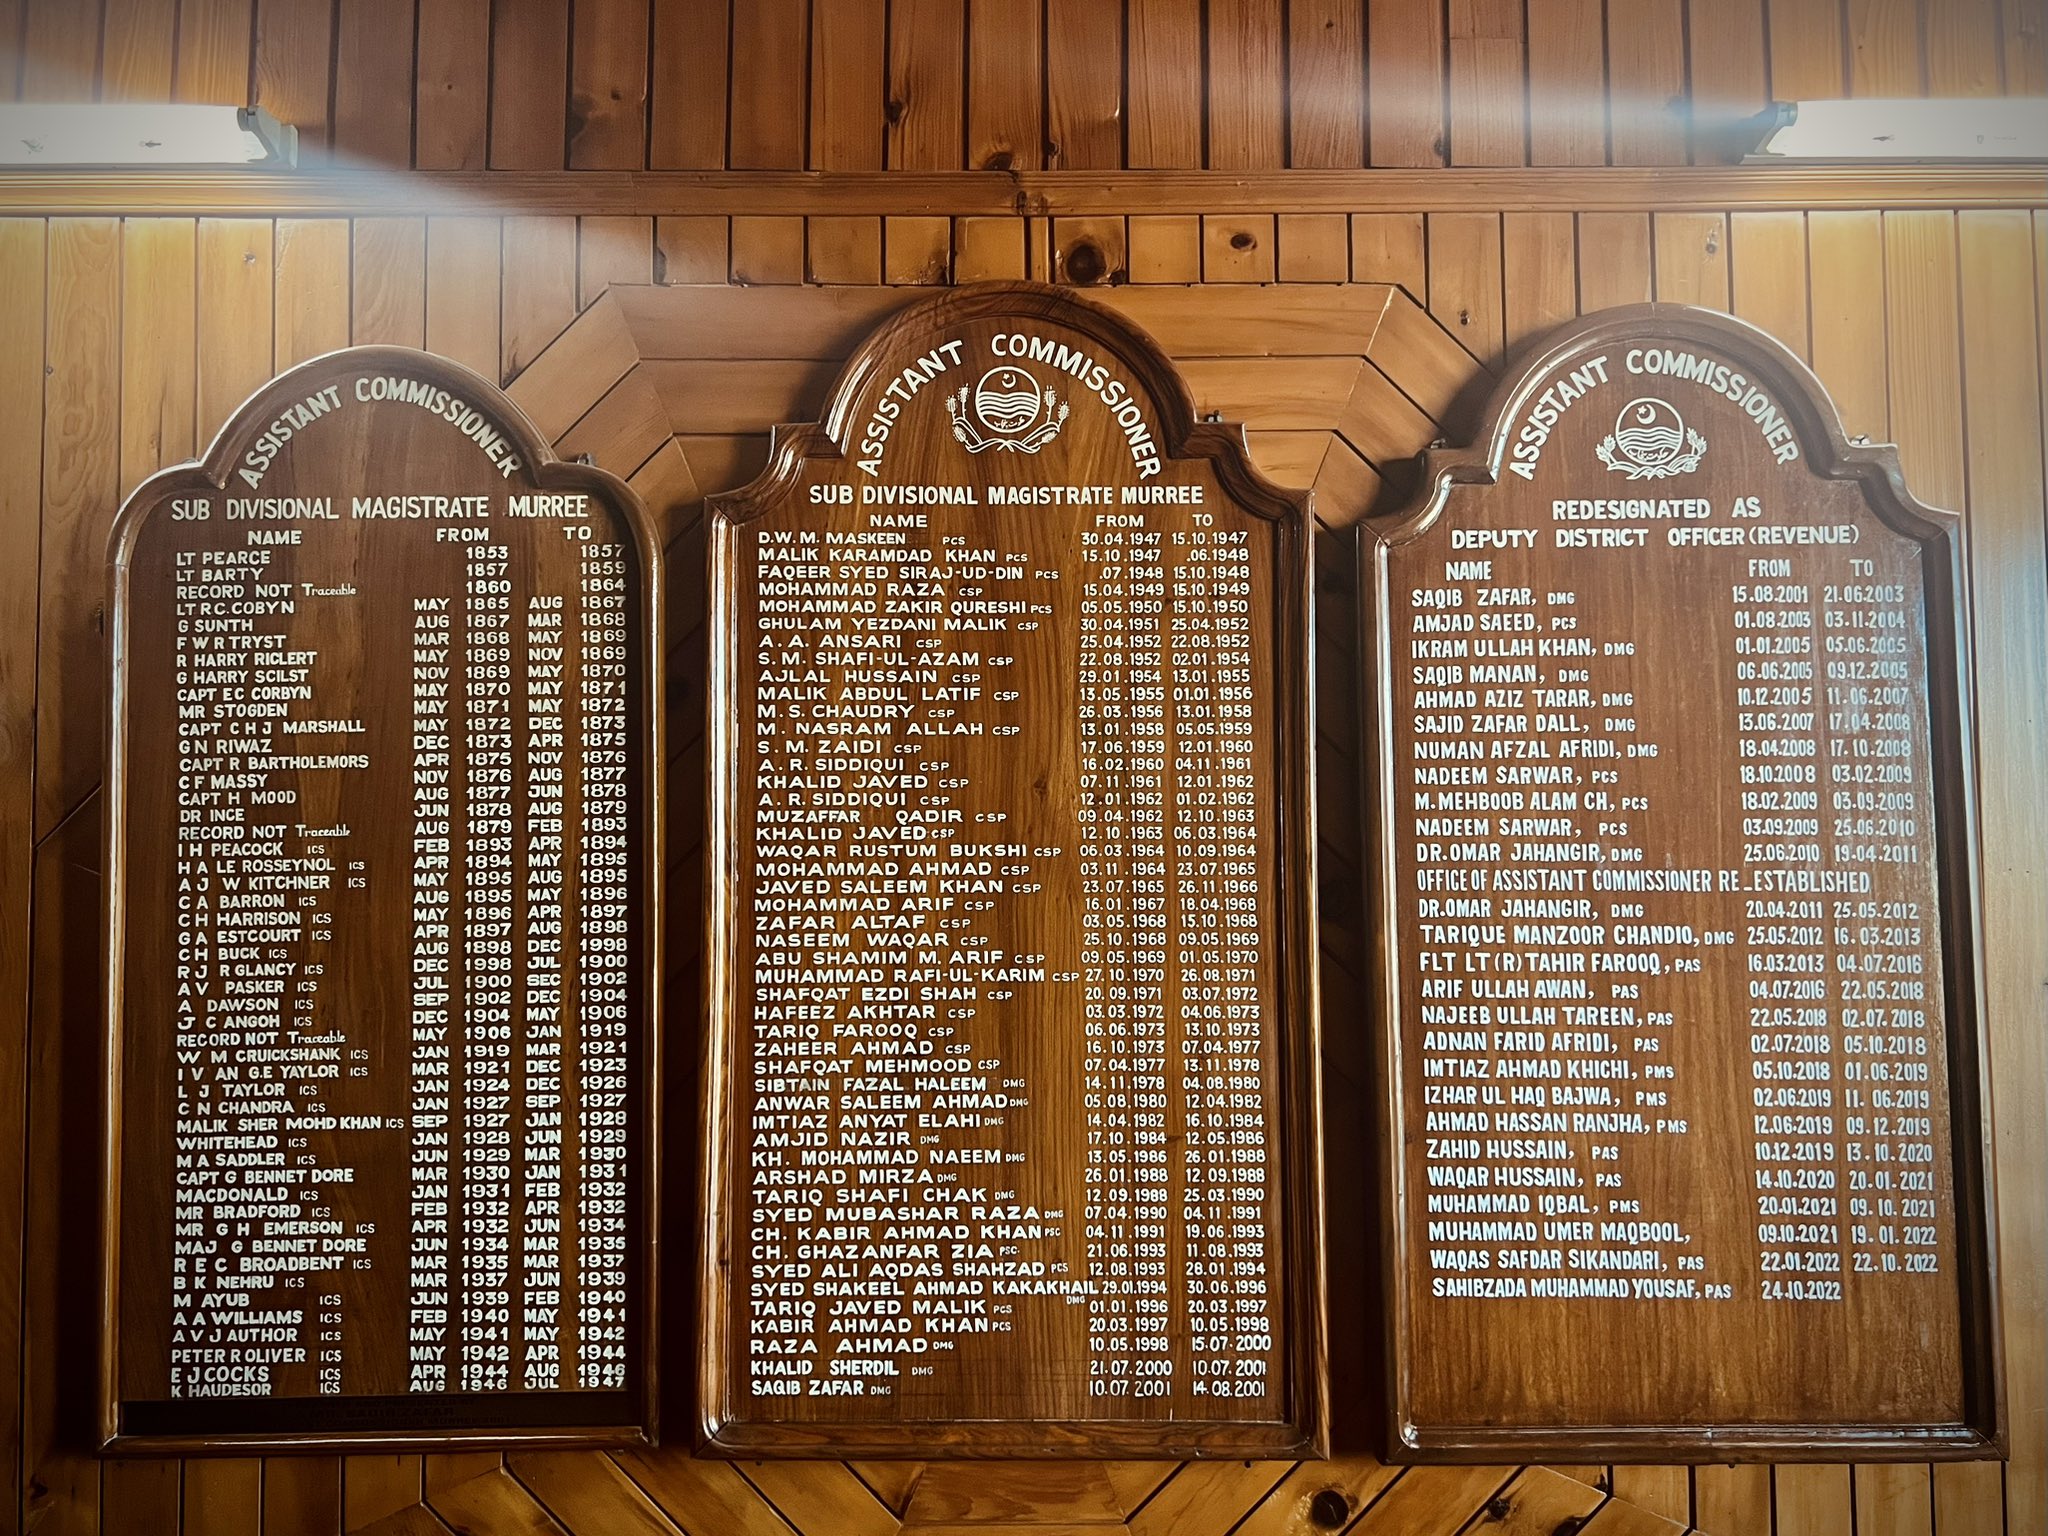 ASSISTANT COMMISSIONER
SUB DIVISIONAL MAGISTRATE MURREE
NAME FROM TO
LT PEARCE 1853 1857
LT BARTY 1857 1859
RECORD NOT Traceable 1860 1864
LT R.C. COBYN MAY 1865 AUG 1867
G SUNTH AUG 1867 MAR 1868
F W R TRYST MAR 1868 MAY 1869
R HARRY RICLERT MAY 1869 NOV 1869
G HARRY SCILST NOV 1869 MAY 1870
CAPT E C CORBYN MAY 1870 MAY 1871
MR STOGDEN MAY 1871 MAY 1872
CAPT C H J MARSHALL MAY 1872 DEC 1873
G N RIWAZ DEC 1873 APR 1875
CAPT R BARTHOLEMORS APR 1875 NOV 1876
C F MASSY NOV 1876 AUG 1877
CAPT H MOOD AUG 1877 JUN 1878
DR INCE JUN 1878 AUG 1879
RECORD NOT Traceable AUG 1879 FEB 1893
I H PEACOCK ICS FEB 1893 APR 1894
H A LE ROSSEYNOL ICS APR 1894 MAY 1895
A J W KITCHNER ICS MAY 1895 AUG 1895
C A BARRON ICS AUG 1895 MAY 1896
C H HARRISON ICS MAY 1896 APR 1897
G A ESTCOURT ICS APR 1897 AUG 1898
C H BUCK ICS AUG 1898 DEC 1998
R J R GLANCY ICS DEC 1998 JUL 1900
A V PASKER ICS JUL 1900 SEC 1902
A DAWSON ICS SEP 1902 DEC 1904
J C ANGOH ICS DEC 1904 MAY 1906
RECORD NOT Traceable MAY 1906 JAN 1919
W M CRUICKSHANK ICS JAN 1919 MAR 1921
I V AN G.E YAYLOR ICS MAR 1921 DEC 1923
L J TAYLOR ICS JAN 1924 DEC 1926
C N CHANDRA ICS JAN 1927 SEP 1927
MALIK SHER MOHD KHAN ICS SEP 1927 JAN 1928
WHITEHEAD ICS JAN 1928 JUN 1929
M A SADDLER ICS JUN 1929 MAR 1930
CAPT G BENNET DORE MAR 1930 JAN 1931
MACDONALD ICS JAN 1931 FEB 1932
MR BRADFORD ICS FEB 1932 APR 1932
MR G H EMERSON ICS APR 1932 JUN 1934
MAJ G BENNET DORE JUN 1934 MAR 1935
R E C BROADBENT ICS MAR 1935 MAR 1937
B K NEHRU ICS MAR 1937 JUN 1939
M AYUB ICS JUN 1939 FEB 1940
A A WILLIAMS ICS FEB 1940 MAY 1941
A V J AUTHOR ICS MAY 1941 MAY 1942
PETER R OLIVER ICS MAY 1942 APR 1944
E J COCKS ICS APR 1944 AUG 1946
K HAUDESOR ICS AUG 1946 JUL 1947
ASSISTANT COMMISSIONER
SUB DIVISIONAL MAGISTRATE MURREE
NAME FROM TO
D.W.M. MASKEEN PCS 30.04.1947 15.10.1947
MALIK KARAMDAD KHAN PCS 15.10.1947 .06.1948
FAQEER SYED SIRAJ-UD-DIN PCS .07.1948 15.10.1948
MOHAMMAD RAZA CSP 15.04.1949 15.10.1949
MOHAMMAD ZAKIR QURESHI PCS 05.05.1950 15.10.1950
GHULAM YEZDANI MALIK CSP 30.04.1951 25.04.1952
A. A. ANSARI CSP 25.04.1952 22.08.1952
S. M. SHAFI-UL-AZAM CSP 22.08.1952 02.01.1954
AJLAL HUSSAIN CSP 29.01.1954 13.01.1955
MALIK ABDUL LATIF CSP 13.05.1955 01.01.1956
M. S. CHAUDRY CSP 26.03.1956 13.01.1958
M. NASRAM ALLAH CSP 13.01.1958 05.05.1959
S. M. ZAIDI CSP 17.06.1959 12.01.1960
A. R. SIDDIQUI CSP 16.02.1960 04.11.1961
KHALID JAVED CSP 07.11.1961 12.01.1962
A. R. SIDDIQUI CSP 12.01.1962 01.02.1962
MUZAFFAR QADIR CSP 09.04.1962 12.10.1963
KHALID JAVED CSP 12.10.1963 06.03.1964
WAQAR RUSTUM BUKSHI CSP 06.03.1964 10.09.1964
MOHAMMAD AHMAD CSP 03.11.1964 23.07.1965
JAVED SALEEM KHAN CSP 23.07.1965 26.11.1966
MOHAMMAD ARIF CSP 16.01.1967 18.04.1968
ZAFAR ALTAF CSP 03.05.1968 15.10.1968
NASEEM WAQAR CSP 25.10.1968 09.05.1969
ABU SHAMIM M. ARIF CSP 09.05.1969 01.05.1970
MUHAMMAD RAFI-UL-KARIM CSP 27.10.1970 26.08.1971
SHAFQAT EZDI SHAH CSP 20.09.1971 03.07.1972
HAFEEZ AKHTAR CSP 03.03.1972 04.06.1973
TARIQ FAROOQ CSP 06.06.1973 13.10.1973
ZAHEER AHMAD CSP 16.10.1973 07.04.1977
SHAFQAT MEHMOOD CSP 07.04.1977 13.11.1978
SIBTAIN FAZAL HALEEM DMG 14.11.1978 04.08.1980
ANWAR SALEEM AHMAD DMG 05.08.1980 12.04.1982
IMTIAZ ANYAT ELAHI DMG 14.04.1982 16.10.1984
AMJID NAZIR DMG 17.10.1984 12.05.1986
KH. MOHAMMAD NAEEM DMG 13.05.1986 26.01.1988
ARSHAD MIRZA DMG 26.01.1988 12.09.1988
TARIQ SHAFI CHAK DMG 12.09.1988 25.03.1990
SYED MUBASHAR RAZA DMG 07.04.1990 04.11.1991
CH. KABIR AHMAD KHAN PSC 04.11.1991 19.06.1993
CH. GHAZANFAR ZIA PSC. 21.06.1993 11.08.1993
SYED ALI AQDAS SHAHZAD PCS 12.08.1993 28.01.1994
SYED SHAKEEL AHMAD KAKAKHAIL DMG 29.01.1994 30.06.1996
TARIQ JAVED MALIK PCS 01.01.1996 20.03.1997
KABIR AHMAD KHAN PCS 20.03.1997 10.05.1998
RAZA AHMAD DMG 10.05.1998 15.07.2000
KHALID SHERDIL DMG 21.07.2000 10.07.2001
SAQIB ZAFAR DMG 10.07.2001 14.08.2001
ASSISTANT COMMISSIONER
REDESIGNATED AS
DEPUTY DISTRICT OFFICER (REVENUE)
NAME FROM TO
SAQIB ZAFAR, DMG 15.08.2001 21.06.2003
AMJAD SAEED, PCS 01.08.2003 03.11.2004
IKRAM ULLAH KHAN, DMG 01.01.2005 05.06.2005
SAQIB MANAN, DMG 06.06.2005 09.12.2005
AHMAD AZIZ TARAR, DMG 10.12.2005 11.06.2007
SAJID ZAFAR DALL, DMG 13.06.2007 17.04.2008
NUMAN AFZAL AFRIDI, DMG 18.04.2008 17.10.2008
NADEEM SARWAR, PCS 18.10.2008 03.02.2009
M. MEHBOOB ALAM CH, PCS 18.02.2009 03.09.2009
NADEEM SARWAR, PCS 03.09.2009 25.06.2010
DR. OMAR JAHANGIR, DMG 25.06.2010 19.04.2011
OFFICE OF ASSISTANT COMMISSIONER RE_ESTABLISHED
DR. OMAR JAHANGIR, DMG 20.04.2011 25.05.2012
TARIQUE MANZOOR CHANDIO, DMG 25.05.2012 16.03.2013
FLT LT (R) TAHIR FAROOQ, PAS 16.03.2013 04.07.2016
ARIF ULLAH AWAN, PAS 04.07.2016 22.05.2018
NAJEEB ULLAH TAREEN, PAS 22.05.2018 02.07.2018
ADNAN FARID AFRIDI, PAS 02.07.2018 05.10.2018
IMTIAZ AHMAD KHICHI, PMS 05.10.2018 01.06.2019
IZHAR UL HAQ BAJWA, PMS 02.06.2019 11.06.2019
AHMAD HASSAN RANJHA, PMS 12.06.2019 09.12.2019
ZAHID HUSSAIN, PAS 10.12.2019 13.10.2020
WAQAR HUSSAIN, PAS 14.10.2020 20.01.2021
MUHAMMAD IQBAL, PMS 20.01.2021 09.10.2021
MUHAMMAD UMER MAQBOOL, 09.10.2021 19.01.2022
WAQAS SAFDAR SIKANDARI, PAS 22.01.2022 22.10.2022
SAHIBZADA MUHAMMAD YOUSAF, PAS 24.10.2022